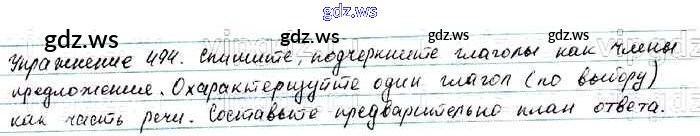 gdz.ws
gdz.ws gdz.ws
Упражнение 494. Спишите, подчеркните глаголы как члены
предложение. Охарактеризуйте один глагол (по выбору)
как часть речи. Составьте предварительно план ответа.
gdz.ws gdz.ws